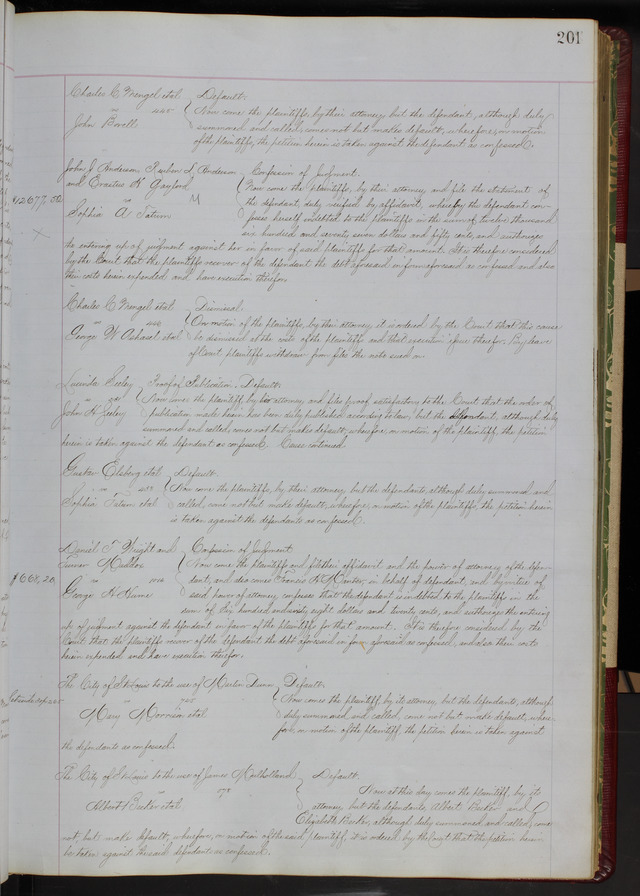 201
Charles C Mengel et al. Default.
vs 445 Now come the plaintiffs by their attorney but the defendant, although duly
John Bovell summoned and called, comes not but makes default; wherefore, on motion
of the plaintiffs, the petition herein is taken against the defendant as confessed.
John J Anderson, Reuben L Anderson Confession of Judgment.
and Erastus H Gaylord Now come the plaintiffs, by their attorney and file the statement of
$12677.50 vs the defendant, duly verified by affidavit, whereby the defendant con-
Sophia A Tatum fesses herself indebted to the plaintiffs in the sum of twelve thousand
six hundred and seventy seven dollars and fifty cents, and authorizes
the entering up of judgment against her in favor of said plaintiffs for that amount. It is therefore considered
by the Court that the plaintiffs recover of the defendant the debt aforesaid in form aforesaid as confessed and also
their costs herein expended and have execution therefor.
Charles C Mengel et al Dismissal
vs On motion of the plaintiffs, by their attorney it is ordered by the Court that this cause
George W et al be dismissed at the costs of the plaintiffs and that execution issue therefor. By leave
of Court plaintiffs withdraw from files the note sued on.
Lucinda Seeley Proof of Publication. Default.
vs Now comes the plaintiff by her attorney and files proof satisfactory to the Court that the order of
John H Seeley publication made herein has been duly published according to law, but the defendant, although duly
summoned and called, comes not but makes default; wherefore, on motion of the plaintiff, the petition
herein is taken against the defendant as confessed. Cause continued.
Gustav Elsberg et al Default.
vs Now come the plaintiffs, by their attorney, but the defendants, although duly summoned and
Sophia Tatum et al called, come not but make default; wherefore, on motion of the plaintiffs, the petition herein
is taken against the defendants as confessed.
Daniel T Wright and Confession of Judgment
Now come the plaintiffs and file their affidavit and the power of attorney of the defen-
$668,20 vs dant, and also comes Francis in behalf of defendant, and by virtue of
George H said power of attorney confesses that the defendant is indebted to the plaintiffs in the
sum of Six hundred and sixty eight dollars and twenty cents, and authorizes the entering
up of judgment against the defendant in favor of the plaintiffs for that amount. It is therefore considered by the
Court that the plaintiffs recover of the defendant the debt aforesaid in form aforesaid as confessed, and also their costs
herein expended and have execution therefor.
The City of St Louis to the use of Martin Dunn Default.
vs Now comes the plaintiff, by its attorney but the defendants, although
Mary Morrison et al duly summoned and called, come not but make default; where-
fore, on motion of the plaintiff, the petition herein is taken against
the defendants as confessed.
The City of St Louis to the use of James Mulholland Default.
vs Now at this day comes the plaintiff, by its
Albert Becker et al attorney but the defendants, Albert Becker and
Elizabeth Becker, although duly summoned and called, come
not but make default; wherefore, on motion of the said plaintiff, it is ordered by the Court that the petition herein
be taken against the said defendants as confessed.